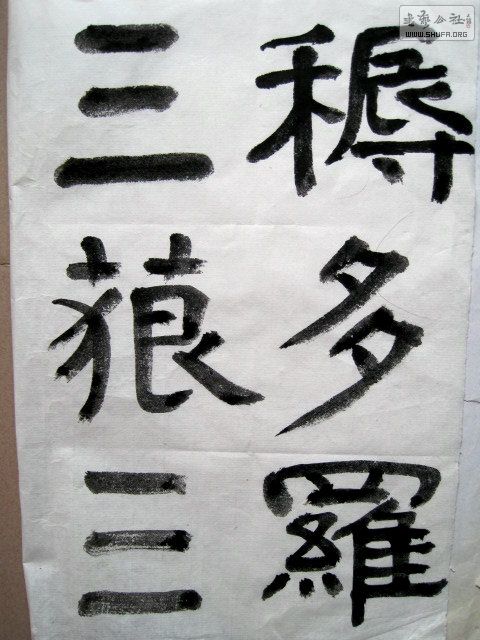 耨多羅
三藐三
WWW.SHUFA.ORG